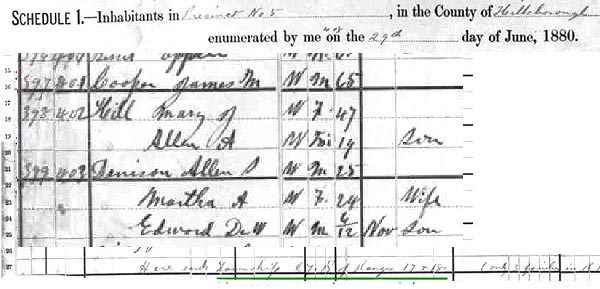 SCHEDULE 1.—Inhabitants in Precinct No 5, in the County of Hillsborough
enumerated by me on the 29th day of June, 1880.
15 397 401 Cooper James M W M 65
16
17 398 402 Hill Mary J W F 47
19 Allen A W M 19 Son
399 403 Denison Allen S W M 25
Martha A W F 24 Wife
Edward De W W M 6/12 Nov Son
26
27 Here ends Township of Range 17 & 18 (only 3 families in